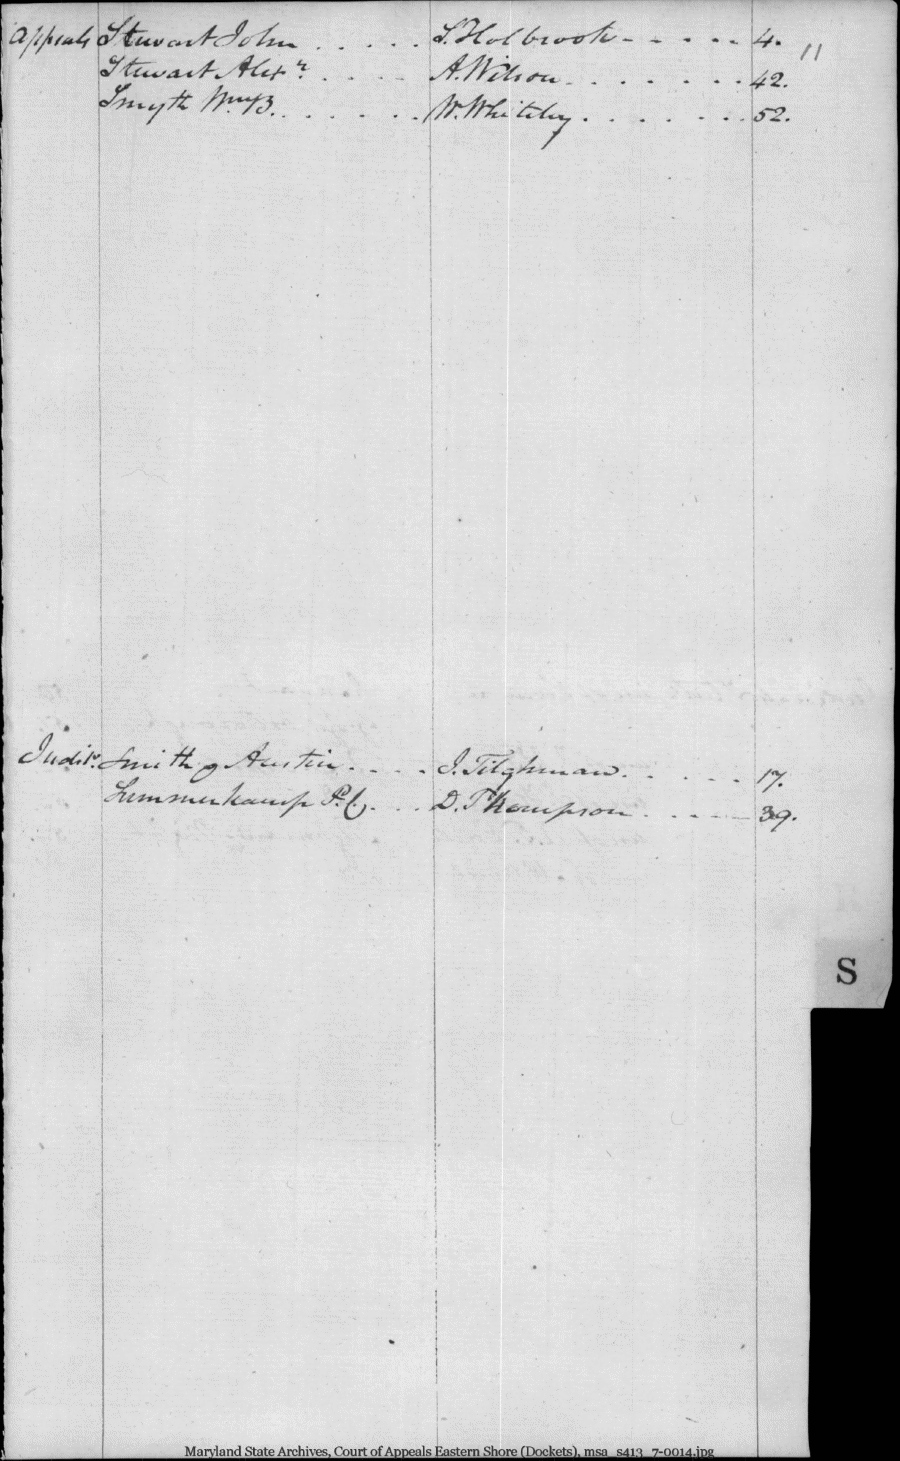 Appeals Stewart John . . . . . S. Holbrook - - - - - - 4. 11
Stewart Alexr. . . . . A. Wilson - . . . . . . . 42.
Smyth Wm. B. . . . . . . W. Whiteley . . . . . . . 52.
Judits. Smith, Austin . . . . J. Tilghman . . . . . . 17.
Summerkamp P. C. . . . D. Thompson . . . . . 39.
S
Maryland State Archives, Court of Appeals Eastern Shore (Dockets), msa_s413_7-0014.jpg